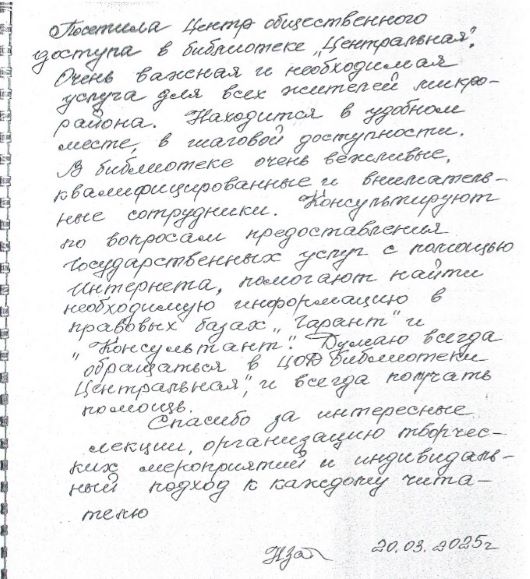 Посетила Центр общественного
доступа в библиотеке „Центральная".
Очень важная и необходимая
услуга для всех жителей микро-
района. Находится в удобном
месте, в шаговой доступности.
В библиотеке очень вежливые,
квалифицированные и вниматель-
ные сотрудники. Консультируют
по вопросам предоставления
государственных услуг с помощью
интернета, помогают найти
необходимую информацию в
правовых базах „Гарант" и
„Консультант". Думаю всегда
обращаться в ЦОД библиотеки
Центральная", и всегда получать
помощь.
Спасибо за интересные
лекции, организацию творчес-
ких мероприятий и индивидаль-
ный подход к каждому чита-
телю
20.03.2025г